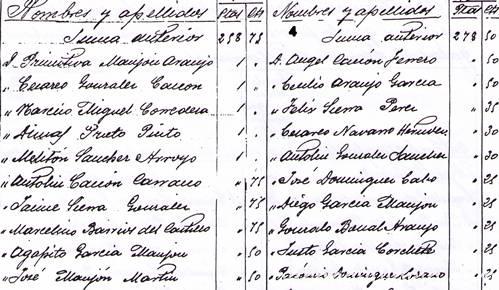 Nombres y apellidos Ptas Cts
Suma anterior 258 75
D. Primitivo Manjón Araujo 1 .
" Cesareo Gonzalez Cancon 1 .
" Narciso Miguel Corredera 1 .
" Dimas Prieto Pinto 1 .
" Meliton Sanchez Arroyo 1 .
" Antolin Cancón Carrasco " 75
" Jaime Sierra Gonzalez " 75
" Marcelino Barrios del Castillo " 75
" Agapito Garcia Manjon " 50
" José Manjón Martin " 50
Nombres y apellidos Ptas Cts
Suma anterior 278 50
D. Angel Cancón Ferrero . 50
" Cecilio Araujo Garcia . 50
" Felix Sierra Perez " 35
" Cesareo Navarro . 30
" Antolin Gonzalez Sanchez . 30
" José Dominguez Cabo . 25
" Diego Garcia Manjon . 25
" Gonzalo Araujo . 25
" Justo Garcia . 25
" Dominguez Lozano . 25